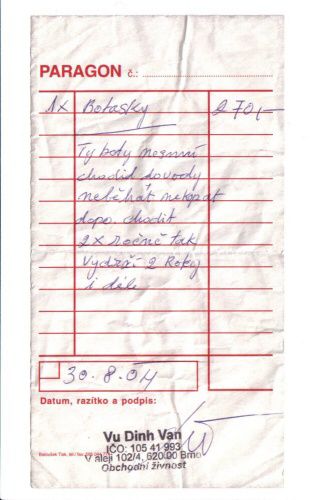 PARAGON č.:
1x Botasky 270,-
Ty boty nesmí
chodid do vody
neběhát nekopat
dopo. chodit
2x ročně tak
Vydrží 2 Roky
i déle
30.8.04
Datum, razítko a podpis:
Vu Dinh Van
IČO: 105 41 993
V aleji 102/4, 620 00 Brno
Obchodní živnost